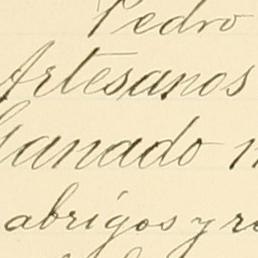 Pedro
Artesanos
Ganado
abrigos y